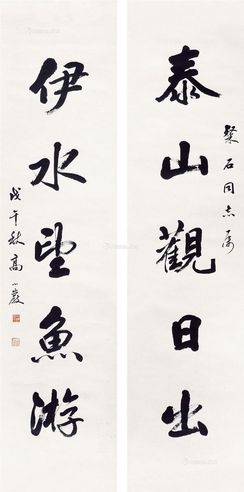 泰山觀日出
石同志屬
伊水望魚游
戊午秋高小巖